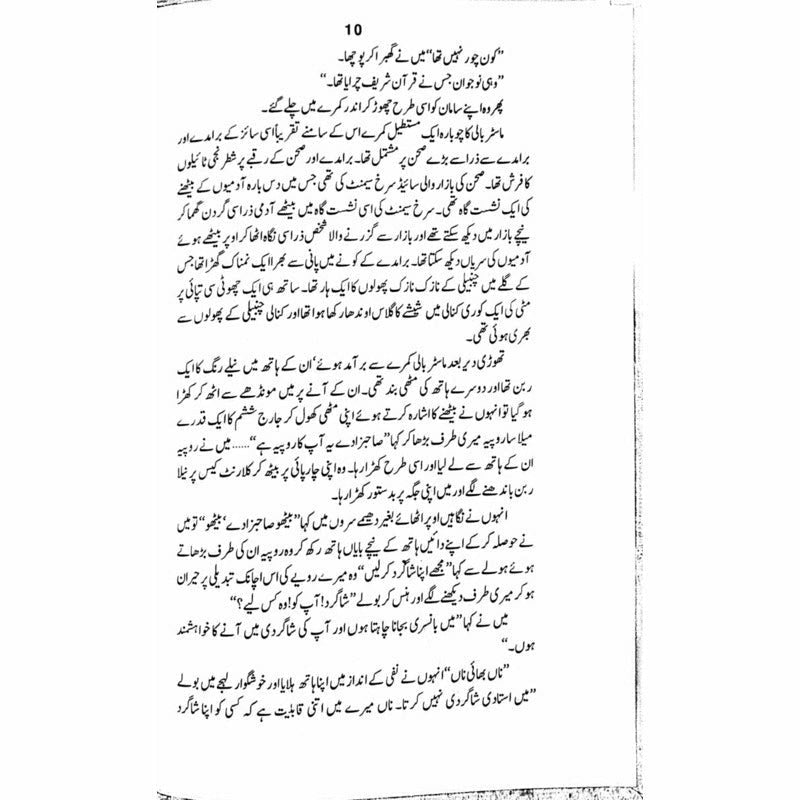 10
”کون چور نہیں تھا“ میں نے گھبرا کر پوچھا۔
”وہی نوجوان جس نے قرآن شریف چرایا تھا۔“
پھر وہ اپنے سامان کو اسی طرح چھوڑ کر اندر کمرے میں چلے گئے۔
ماسٹر بالی کا چوبارہ ایک مستطیل کمرے اس کے سامنے تقریباً اسی سائز کے برامدے اور
برامدے سے ذرا سے بڑے صحن پر مشتمل تھا۔ برامدے اور صحن کے رقبے پر شطرنجی ٹائیلوں
کا فرش تھا۔ صحن کی بازار والی سائیڈ سرخ سیمنٹ کی تھی جس میں دس بارہ آدمیوں کے بیٹھنے
کی ایک نشست گاہ تھی۔ سرخ سیمنٹ کی اسی نشست گاہ میں بیٹھے آدمی ذرا سی گردن گھما کر
نیچے بازار میں دیکھ سکتے تھے اور بازار سے گزرنے والا شخص ذرا سی نگاہ اٹھا کر اوپر بیٹھے ہوئے
آدمیوں کی سریاں دیکھ سکتا تھا۔ برامدے کے کونے میں پانی سے بھرا ایک نمناک گھڑا تھا جس
کے گلے میں چنبیلی کے نازک نازک پھولوں کا ایک ہار تھا۔ ساتھ ہی ایک چھوٹی سی تپائی پر
مٹی کی ایک کوری کنالی میں شیشے کا گلاس اوندھا رکھا ہوا تھا اور کنالی چنبیلی کے پھولوں سے
بھری ہوئی تھی۔
تھوڑی دیر بعد ماسٹر بالی کمرے سے برآمد ہوئے‘ ان کے ہاتھ میں نیلے رنگ کا ایک
ربن تھا اور دوسرے ہاتھ کی مٹھی بند تھی۔ ان کے آنے پر میں مونڈھے سے اٹھ کر کھڑا
ہو گیا تو انہوں نے بیٹھنے کا اشارہ کرتے ہوئے اپنی مٹھی کھول کر جارج ششم کا ایک قدرے
میلا سا روپیہ میری طرف بڑھا کر کہا ”صاحبزادے یہ آپ کا روپیہ ہے“...... میں نے روپیہ
ان کے ہاتھ سے لے لیا اور اسی طرح کھڑا رہا۔ وہ اپنی چارپائی پر بیٹھ کر کلارنٹ کیس پر نیلا
ربن باندھنے لگے اور میں اپنی جگہ پر بدستور کھڑا رہا۔
انہوں نے نگاہیں اوپر اٹھائے بغیر دھیمے سروں میں کہا ”بیٹھو صاحبزادے‘ بیٹھو“ تو میں
نے حوصلہ کر کے اپنے دائیں ہاتھ کے نیچے بایاں ہاتھ رکھ کر وہ روپیہ ان کی طرف بڑھاتے
ہوئے ہولے سے کہا ”مجھے اپنا شاگرد کر لیں“ وہ میرے رویے کی اس اچانک تبدیلی پر حیران
ہو کر میری طرف دیکھنے لگے اور ہنس کر بولے ”شاگرد! آپ کو! وہ کس لیے؟“
میں نے کہا ”میں بانسری بجانا چاہتا ہوں اور آپ کی شاگردی میں آنے کا خواہشمند
ہوں۔“
”ناں بھائی ناں“ انہوں نے نفی کے انداز میں اپنا ہاتھ ہلایا اور خوشگوار لہجے میں بولے
”میں استادی شاگردی نہیں کرتا۔ ناں میرے میں اتنی قابلیت ہے کہ کسی کو اپنا شاگرد